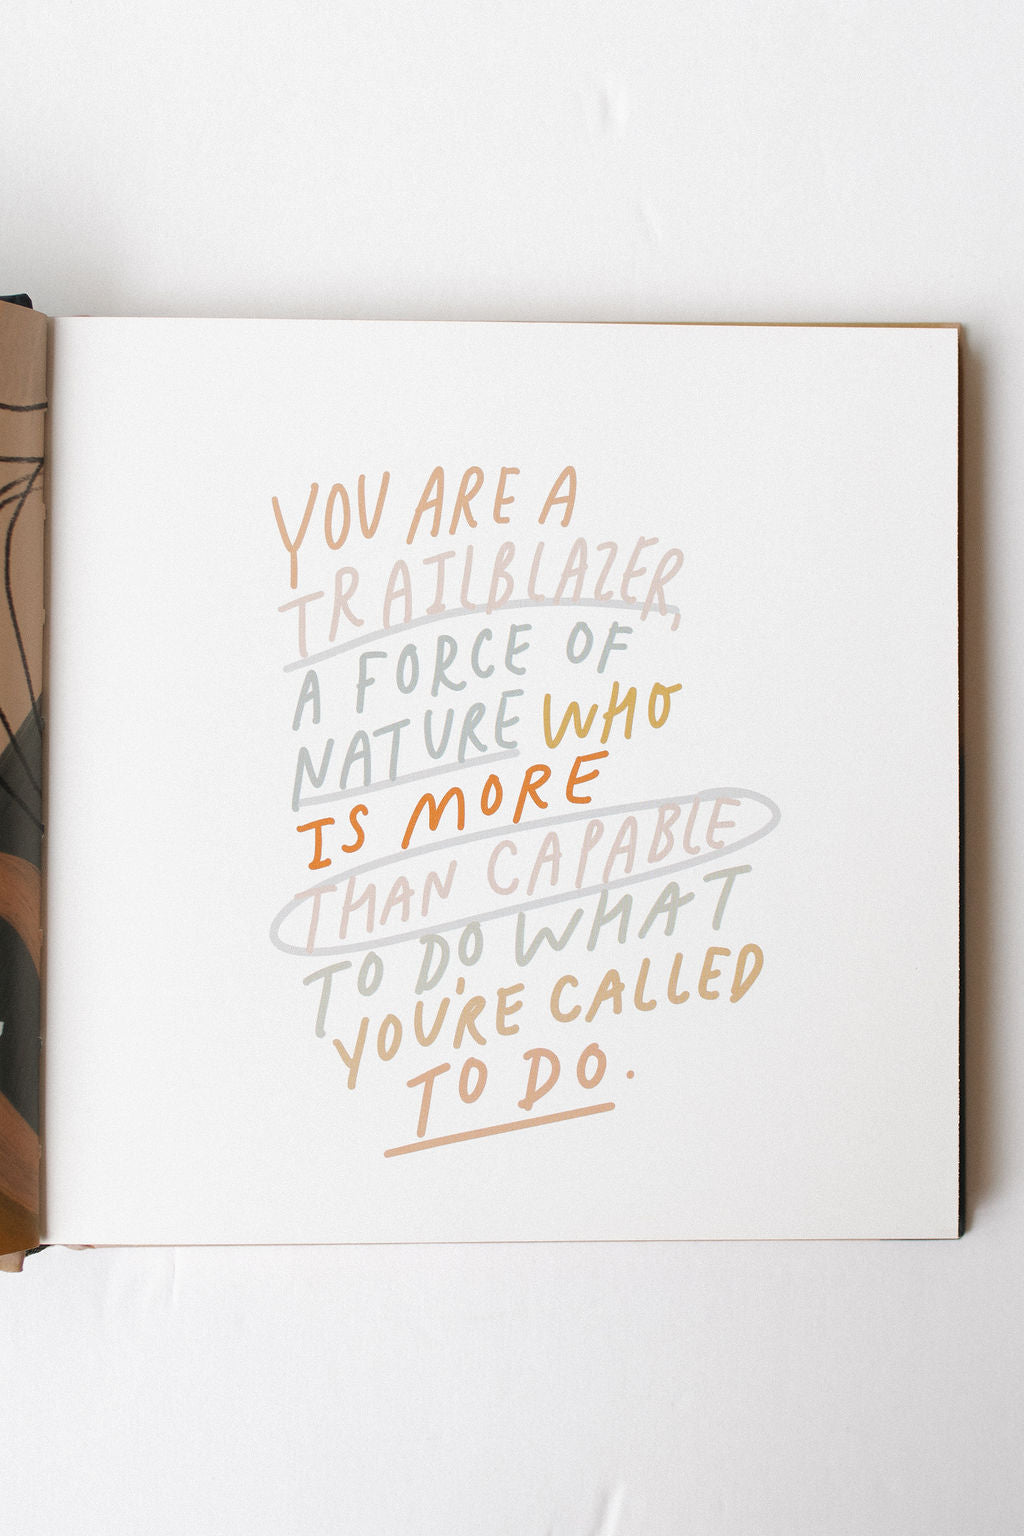 YOU ARE A
TRAILBLAZER,
A FORCE OF
NATURE WHO
IS MORE
THAN CAPABLE
TO DO WHAT
YOU'RE CALLED
TO DO.